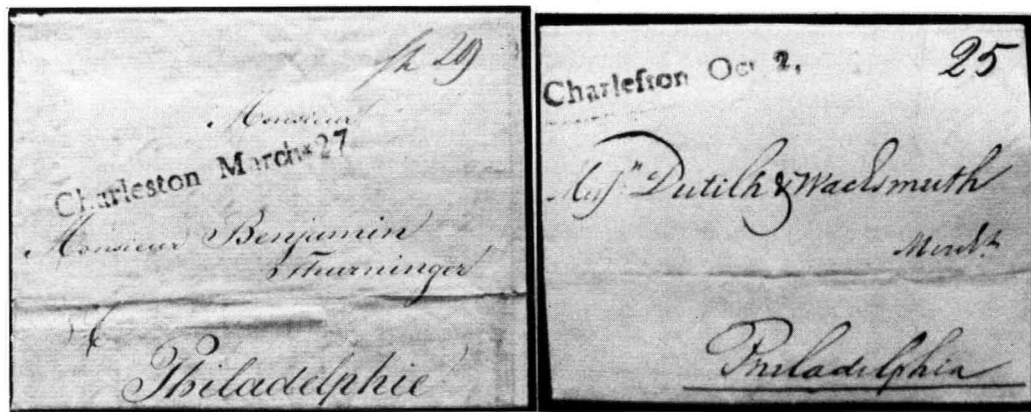 Sh 29
Monsieur
Charleston March 27
Monsieur Benjamin
Thurninger
Philadelphie
Charleſton Oct 2,
25
Messrs Dutilh & Wachsmuth
Mercht.
Philadelphia